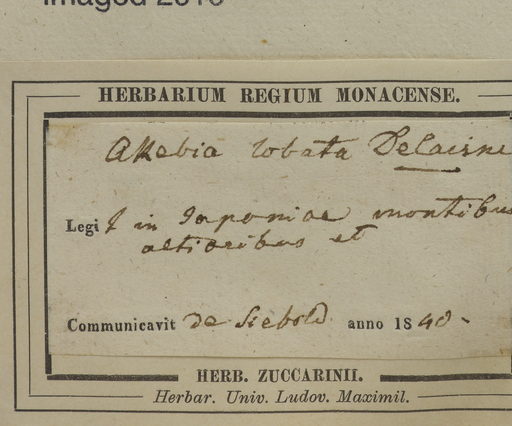 Imaged 2016
HERBARIUM REGIUM MONACENSE.
Akebia lobata Decaisne
Legi in Japoniae montibus
altioribus et
Communicavit de Siebold. anno 1840.
HERB. ZUCCARINII.
Herbar. Univ. Ludov. Maximil.